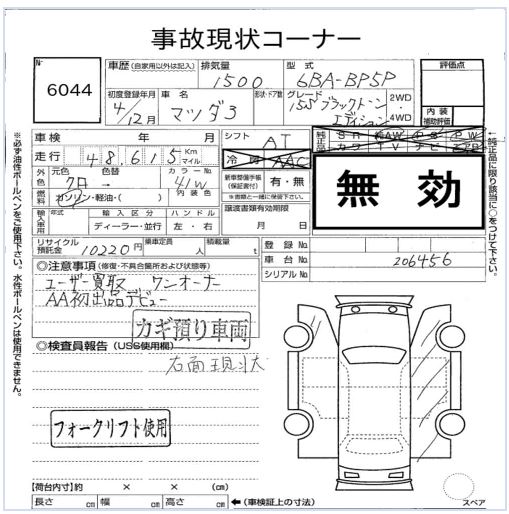 事故現状コーナー
No
6044
車歴 (自家用以外は記入)
排気量
1500
型式
6BA-BP5P
評価点
初度登録年月
4/12月
車名
マツダ3
形状・ドア数
グレード
15S ブラックトーン
エディション
2WD
4WD
内装
補助評価
車検 年 月
シフト
AT
走行
48.615 Km
マイル
冷房
AAC
純正品
SR AW PS PW
カワ TV ナビ エアB
無効
外色
元色 色替
クロ→
カラーNo
41W
内装色
燃料
ガソリン・軽油・( )
新車整備手帳
(保証書付)
有・無
※書類と一緒に保管して下さい。
輸入車用
年式
輸入区分
ディーラー・並行
ハンドル
左・右
譲渡書類有効期限
月 日
リサイクル
預託金
10220円
乗車定員
人
積載量
t
登録No
車台No
206456
シリアルNo
◎注意事項 (修復・不具合箇所および状態等)
ユーザー買取 ワンオーナー
AA初出品デビュー
カギ預り車両
◎検査員報告 (USS使用欄)
右面現状
フォークリフト使用
【荷台内寸】約 × × (cm)
長さ cm 幅 cm 高さ cm
←(車検証上の寸法)
スペア
※必ず油性ボールペンをご使用下さい。水性ボールペンは使用できません。
←純正品に限り該当に○をつけて下さい。